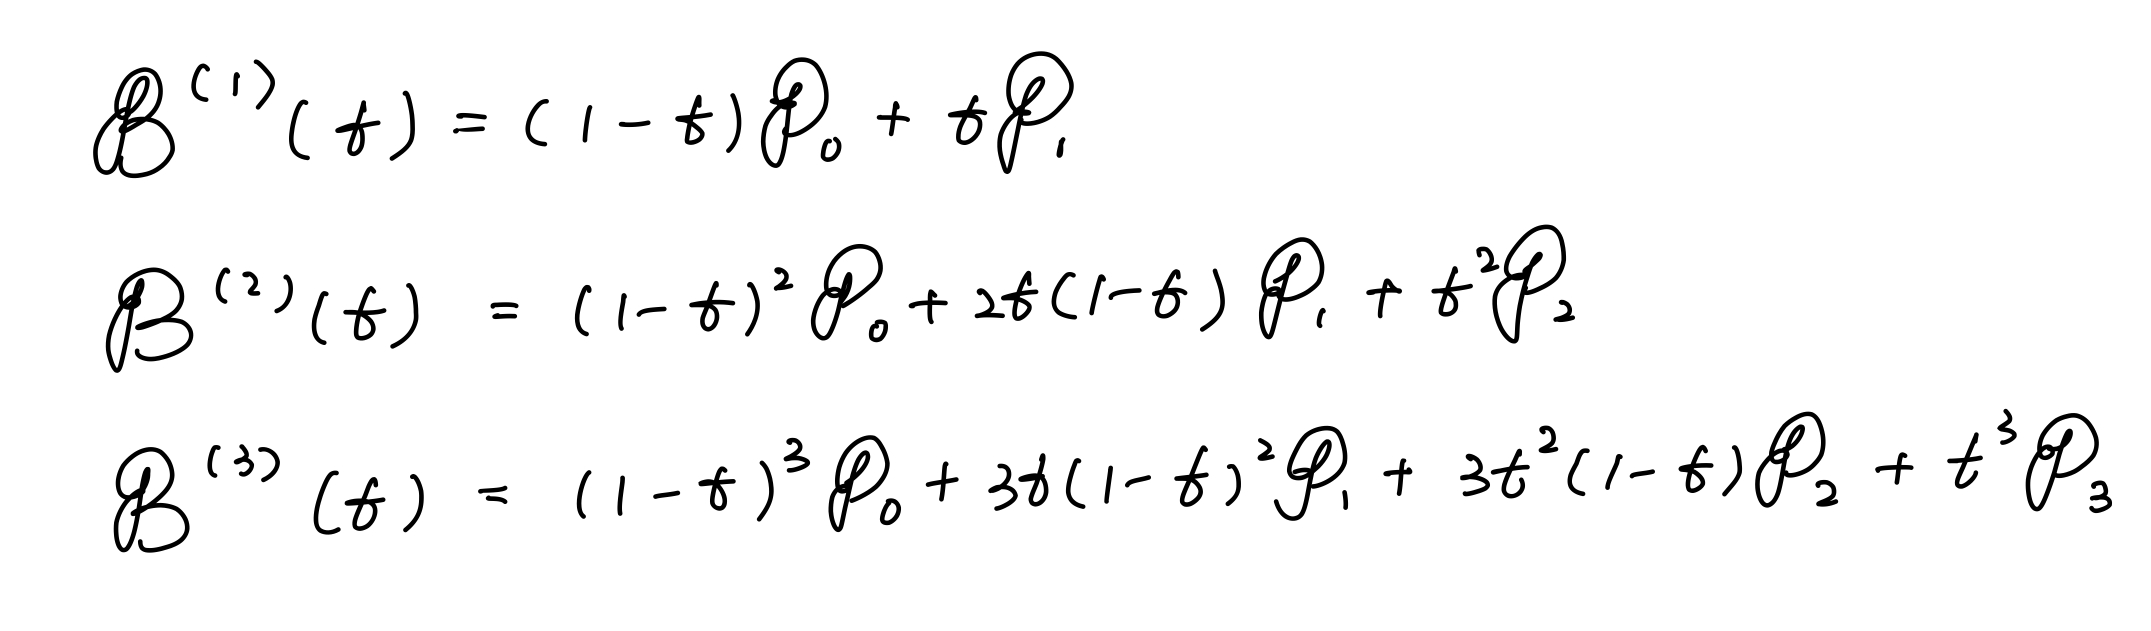 B⁽¹⁾(t) = (1 - t)P₀ + tP₁
B⁽²⁾(t) = (1 - t)²P₀ + 2t(1 - t)P₁ + t²P₂
B⁽³⁾(t) = (1 - t)³P₀ + 3t(1 - t)²P₁ + 3t²(1 - t)P₂ + t³P₃